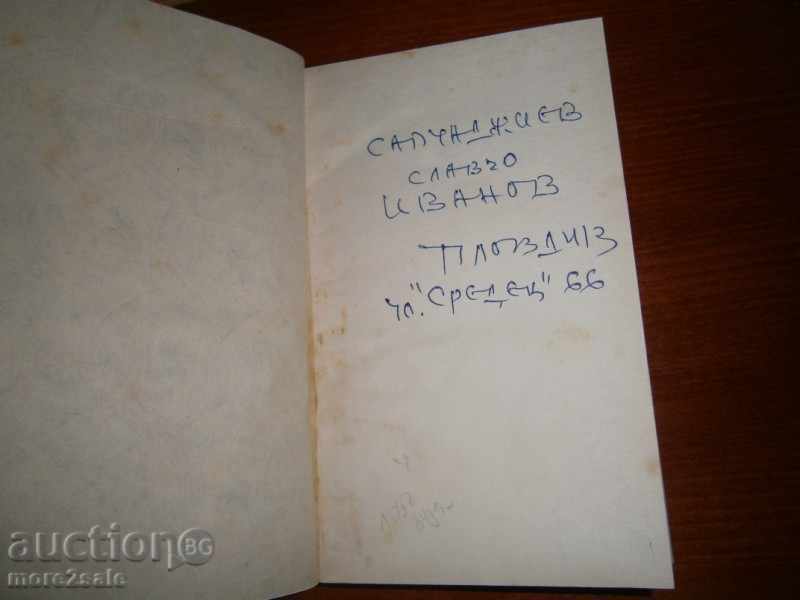 САПУНДЖИЕВ
СЛАВЧО
ИВАНОВ
ПЛОВДИВ
ул. "СРЕДЕЦ" 66
auction BG
more2sale